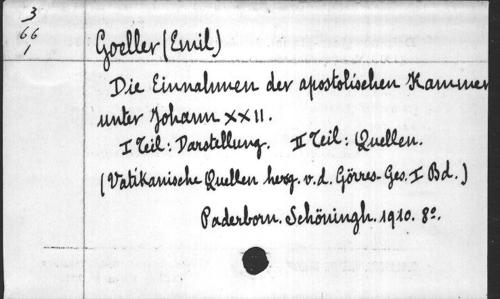 3
66
1
Goeller (Emil)
Die Einnahmen der apostolischen Kammer
unter Johann XXII.
I Teil: Darstellung. II Teil: Quellen.
(Vatikanische Quellen herg. v. d. Görres-Ges. I Bd.)
Paderborn. Schöningh. 1910. 8º.